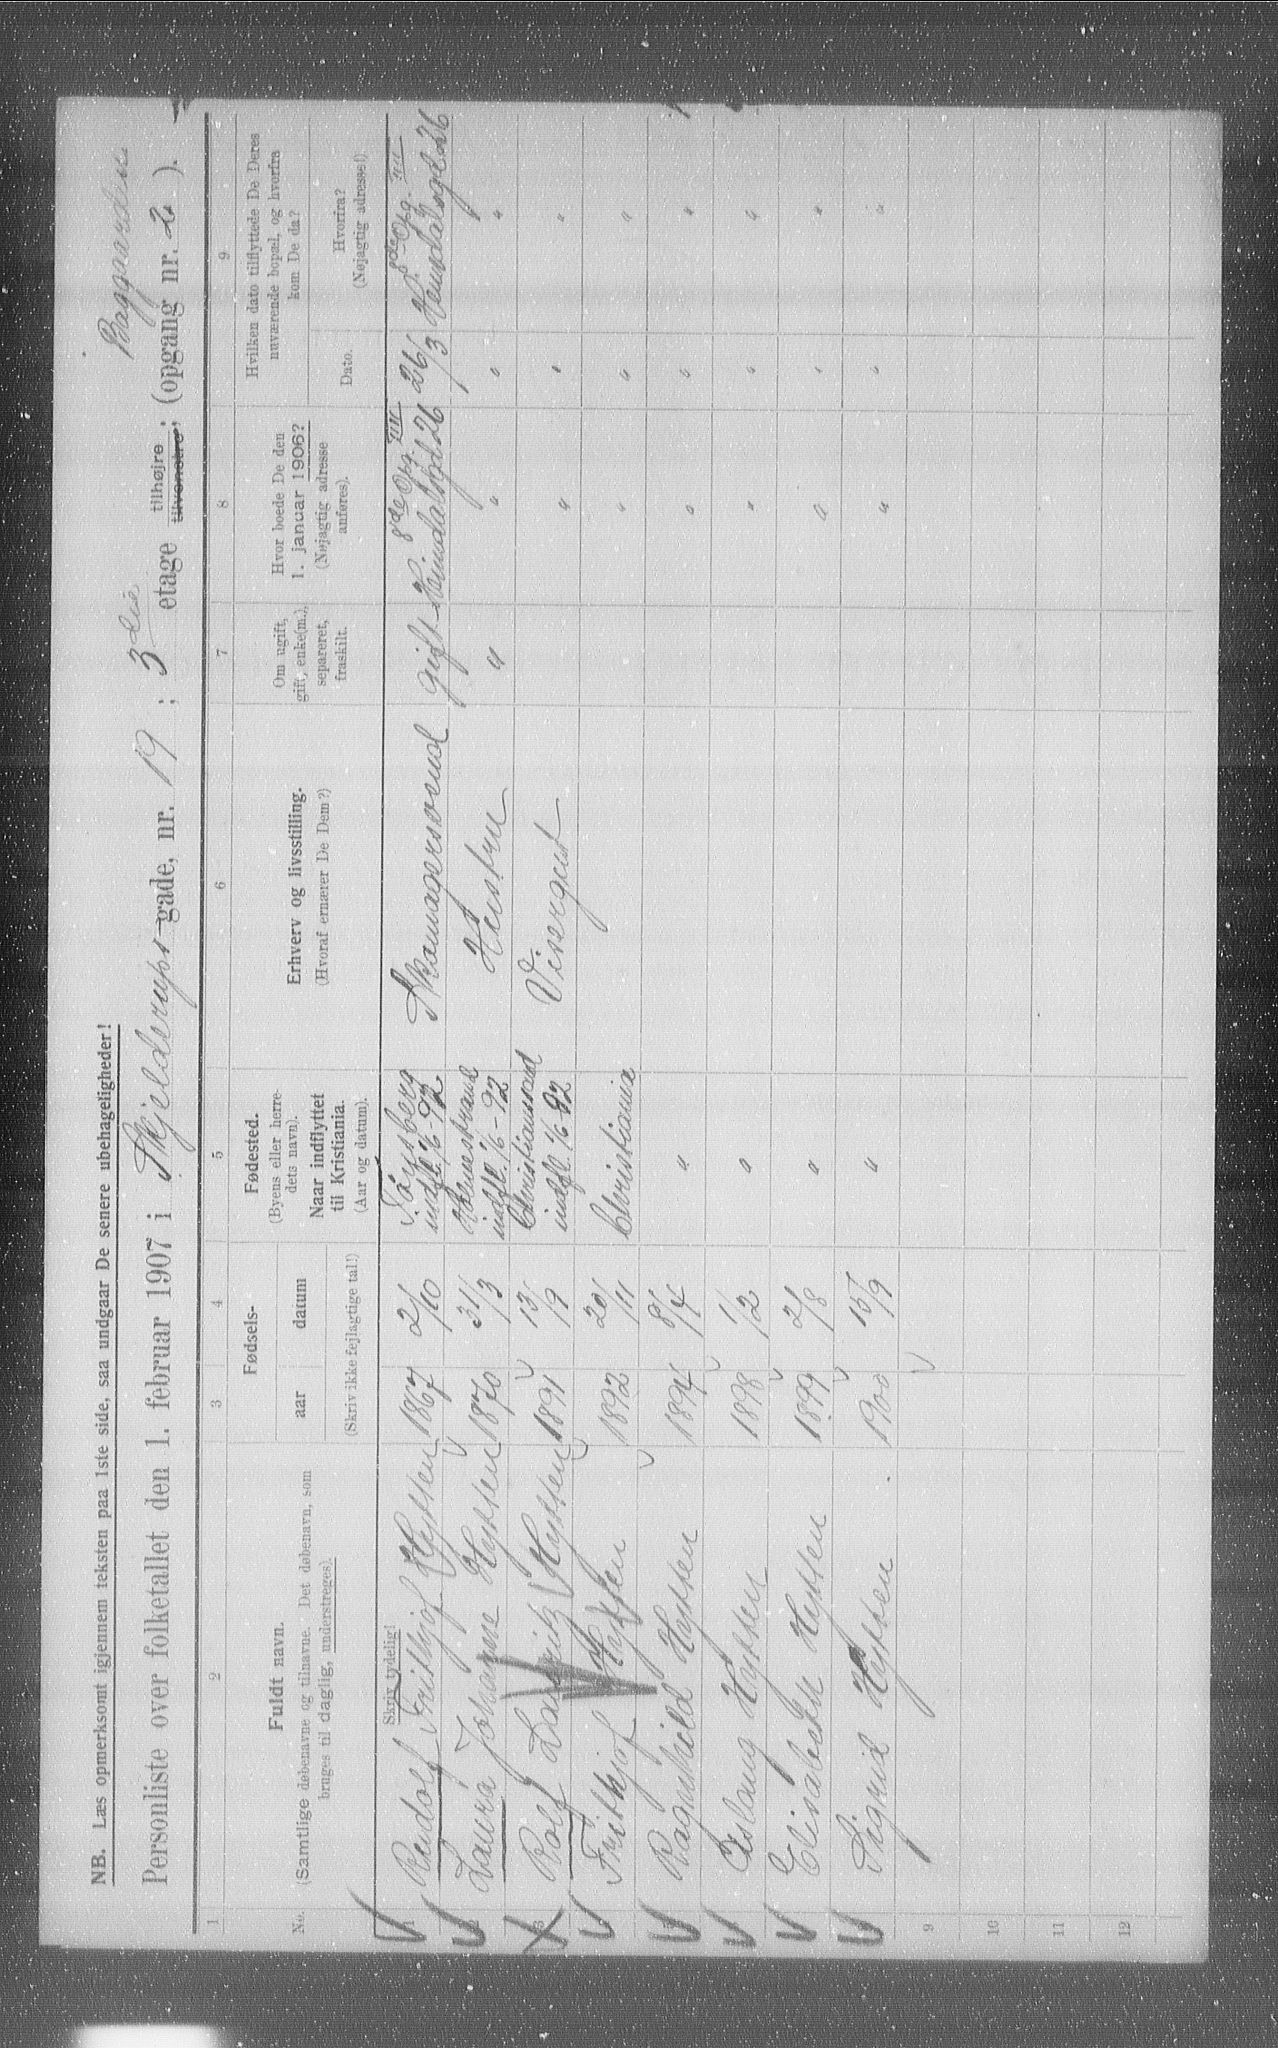 NB. Læs opmerksomt igjennem teksten paa 1ste side, saa undgaar De senere ubehageligheder!
Baggaarden
Personliste over folketallet den 1. februar 1907 i Skjelderups gade, nr. 19 ; 3die etage tilhøjre tilvenstre; (opgang nr. 2 ).
1 2 3 4 5 6 7 8 9
No. Fuldt navn. (Samtlige døbenavne og tilnavne. Det døbenavn, som bruges til daglig, understreges).
Fødsels- aar datum (Skriv ikke fejlagtige tal!)
Fødested. (Byens eller herredets navn). Naar indflyttet til Kristiania. (Aar og datum).
Erhverv og livsstilling. (Hvoraf ernærer De Dem?)
Om ugift, gift, enke(m.), separeret, fraskilt.
Hvor boede De den 1. januar 1906? (Nøjagtig adresse anføres).
Hvilken dato tilflyttede De Deres nuværende bopæl, og hvorfra kom De da?
Dato. Hvorfra? (Nøjagtig adresse!)
Skriv tydelig!
1 Rudolf Frithjof Hytten 1867 2/10 Tønsberg indfl. 1/6-92 Skomagersvend gift Heimdalsgt 26 8de Opg. III 26/3 Heimdalsgt. 26 8de Opg. III
2 Laura Johanne Hytten 1870 31/3 Holmestrand indfl. 1/6-92 Hustru " " " "
3 Rolf Lauritz Hytten 1891 13/9 Christianssand indfl. 1/6 92 Visergut " " "
4 Frithjof Hytten 1892 20/11 Christiania " " "
5 Ragnhild Hytten 1894 8/4 " " " "
6 Aslaug Hytten 1898 1/2 " " " "
7 Elisabeth Hytten 1899 2/8 " " " "
8 Sigrid Hytten 1900 15/9 " " " "
9
10
11
12